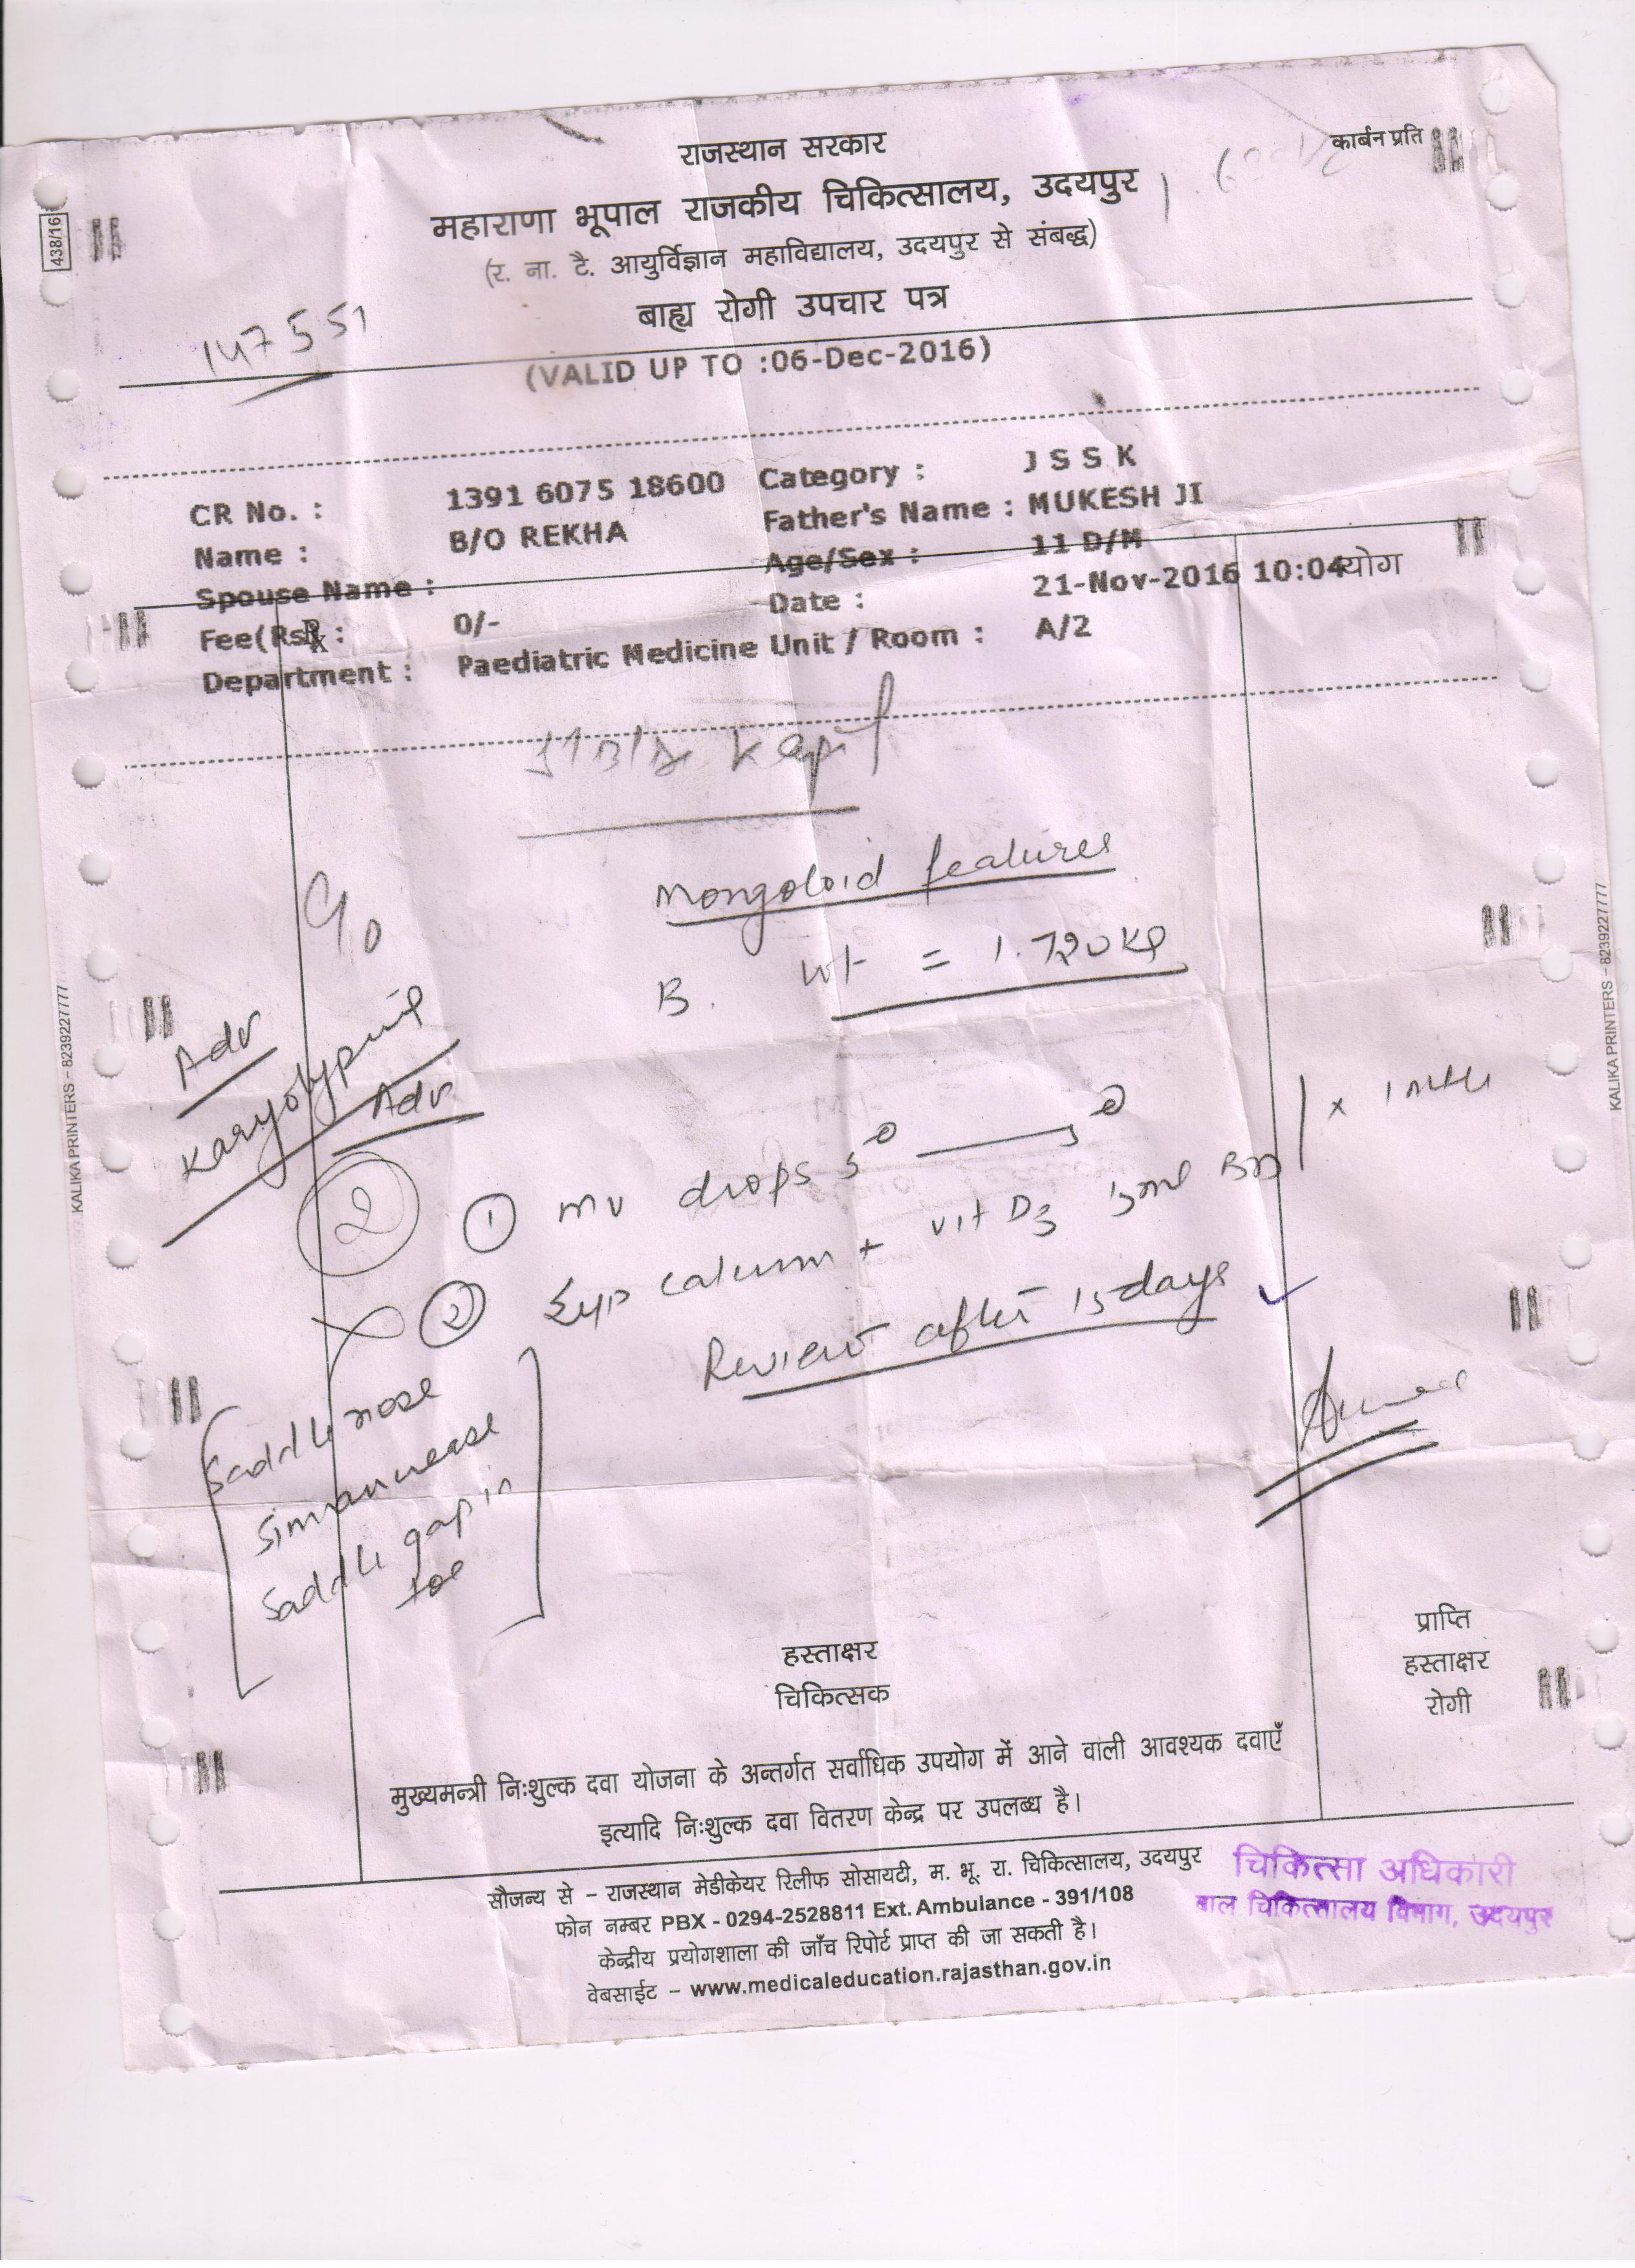 राजस्थान सरकार
कार्बन प्रति
438/16
महाराणा भूपाल राजकीय चिकित्सालय, उदयपुर
(र. ना. टै. आयुर्विज्ञान महाविद्यालय, उदयपुर से संबद्ध)
बाह्य रोगी उपचार पत्र
147551
(VALID UP TO :06-Dec-2016)
CR No. : 1391 6075 18600 Category : J S S K
Name : B/O REKHA Father's Name : MUKESH JI
Spouse Name : Age/Sex : 11 D/M
Fee(Rs) : 0/- Date : 21-Nov-2016 10:04
Rx
योग
Department : Paediatric Medicine Unit / Room : A/2
Mongoloid features
B. wt = 1.720 Kg
Adv
Karyotyping
Adv
2
① mv drops 5
② Syp calcium + vit D3
Review after 15 days
Saddle nose
Simian crease
Saddle gap in
toe
हस्ताक्षर
चिकित्सक
प्राप्ति
हस्ताक्षर
रोगी
मुख्यमन्त्री निःशुल्क दवा योजना के अन्तर्गत सर्वाधिक उपयोग में आने वाली आवश्यक दवाएँ
इत्यादि निःशुल्क दवा वितरण केन्द्र पर उपलब्ध है।
सौजन्य से – राजस्थान मेडीकेयर रिलीफ सोसायटी, म. भू. रा. चिकित्सालय, उदयपुर
फोन नम्बर PBX - 0294-2528811 Ext. Ambulance - 391/108
केन्द्रीय प्रयोगशाला की जाँच रिपोर्ट प्राप्त की जा सकती है।
वेबसाईट – www.medicaleducation.rajasthan.gov.in
चिकित्सा अधिकारी
बाल चिकित्सालय विभाग, उदयपुर
KALIKA PRINTERS – 8239227777
KALIKA PRINTERS – 8239227777